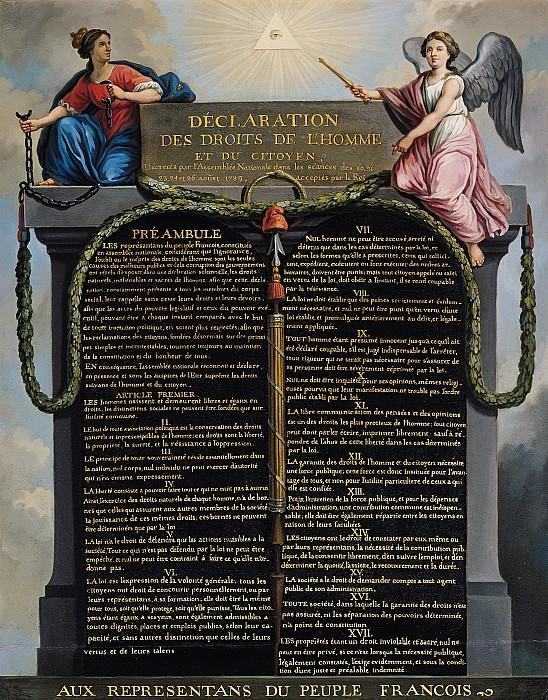 DÉCLARATION
DES DROITS DE L'HOMME
ET DU CITOYEN,
Décretés par l'Assemblée Nationale dans les séances des 20, 21
23, 24 et 26 aoûst 1789, acceptés par le Roi
PRÉAMBULE
LES représentans du peuple François, constitués
en assemblée nationale, considérant que l'ignorance,
l'oubli ou le mépris des droits de l'homme sont les seules
causes des malheurs publics et de la corruption des gouvernemens
ont résolu d'exposer dans une déclaration solemnelle, les droits
naturels, inaliénables et sacrés de l'homme; afin que cette décla-
ration, constamment présente à tous les membres du corps
social, leur rappelle sans cesse leurs droits et leurs devoirs;
afin que les actes du pouvoir législatif et ceux du pouvoir exé-
cutif, pouvant être à chaque instant comparés avec le but
de toute institution politique, en soient plus respectés; afin que
les réclamations des citoyens, fondées désormais sur des princi-
pes simples et incontestables, tournent toujours au maintien
de la constitution et du bonheur de tous.
EN conséquence, l'assemblée nationale reconnoît et déclare,
en presence et sous les auspices de l'Etre suprême les droits
suivans de l'homme et du citoyen.
ARTICLE PREMIER.
LES hommes naissent et demeurent libres et égaux en
droits. les distinctions sociales ne peuvent être fondées que sur
l'utilité commune.
II.
LE but de toute association politique est la conservation des droits
naturels et imprescriptibles de l'homme; ces droits sont la liberté,
la propriété, la sureté, et la résistance à l'oppression.
III.
LE principe de toute souveraineté réside essentiellement dans
la nation, nul corps, nul individu ne peut exercer d'autorité
qui n'en émane expressément.
IV.
LA liberté consiste a pouvoir faire tout ce qui ne nuit pas à autrui
Ainsi, l'exercice des droits naturels de chaque homme, n'a de bor-
nes que celles qui assurent aux autres membres de la société
la jouissance de ces mêmes droits; ces bornes ne peuvent
être déterminées que par la loi
V.
LA loi n'a le droit de défendre que les actions nuisibles à la
société. Tout ce qui n'est pas défendu par la loi ne peut être
empêché, et nul ne peut être contraint à faire ce qu'elle n'or-
donne pas.
VI.
LA loi est l'expression de la volonté générale; tous les
citoyens ont droit de concourir personnellement, ou par
leurs représentans, à sa formation; elle doit être la même
pour tous, soit qu'elle protege, soit qu'elle punisse. Tous les cito-
yens étant égaux à ses yeux, sont également admissibles à
toutes dignités, places et emplois publics, selon leur capa-
cité, et sans autres distinction que celles de leurs
vertus et de leurs talens
VII.
NUL homme ne peut être accusé, arreté ni
détenu que dans les cas déterminés par la loi, et
selon les formes qu'elle a prescrites, ceux qui sollici-
tent, expédient, exécutent ou font exécuter des ordres ar-
bitraires, doivent être punis; mais tout citoyen appelé ou saisi
en vertu de la loi, doit obéir a l'instant, il se rend coupable
par la résistance.
VIII.
LA loi ne doit établir que des peines strictement et évidem-
ment nécessaire, et nul ne peut être puni qu'en vertu d'une
loi établie et promulguée antérieurement au délit, et légale-
ment appliquée.
IX.
TOUT homme étant présumé innocent jusqu'a ce qu'il ait
été déclaré coupable, s'il est jugé indispensable de l'arrêter,
toute rigueur qui ne serait pas nécessaire pour s'assurer de
sa personne doit être sévèrement réprimée par la loi.
X.
NUL ne doit être inquiété pour ses opinions, mêmes religi-
euses pourvu que leur manifestation ne trouble pas l'ordre
public établi par la loi.
XI.
LA libre communication des pensées et des opinions
est un des droits les plus precieux de l'homme; tout citoyen
peut dont parler écrire, imprimer librement: sauf à ré-
pondre de l'abus de cette liberté dans les cas déterminés
par la loi.
XII.
LA garantie des droits de l'homme et du citoyen nécessite
une force publique; cette force est donc instituée pour l'avan-
tage de tous, et non pour l'utilité particuliere de ceux a qui
elle est confiée.
XIII.
Pour l'entretien de la force publique, et pour les dépenses
d'administration, une contribution commune est indispen-
sable; elle doit être également répartie entre les citoyens en
raison de leurs facultées
XIV.
LES citoyens ont le droit de constater par eux même ou
par leurs représentans, la nécessité de la contribution pub-
lique, de la consentir librement, d'en suivre l'emploi, et d'en
déterminer la quotité, l'assiette, le recouvrement et la durée.
XV.
LA société a le droit de demander compte a tout agent
public de son administration.
XVI.
TOUTE société, dans laquelle la garantie des droits n'est
pas assurée, ni la séparation des pouvoirs déterminée,
n'a point de constitution
XVII.
LES propriétés étant un droit inviolable et sacré, nul ne
peut en être privé, si ce n'est lorsque la nécessité publique,
légalement constatée, l'exige évidemment, et sous la condi-
tion d'une juste et préalable indemnité.
AUX REPRESENTANS DU PEUPLE FRANCOIS